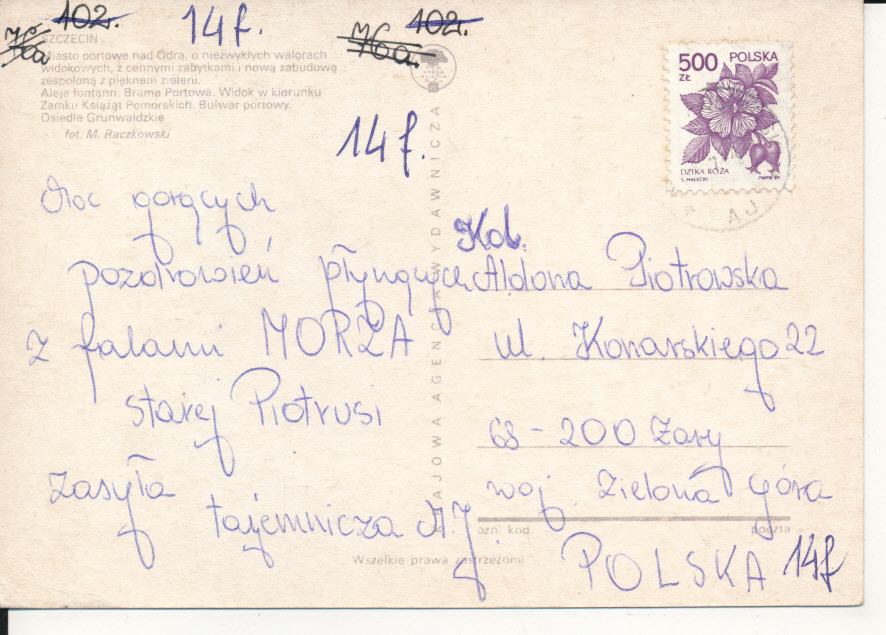 102.
76a
14f.
102.
76a.
SZCZECIN
Miasto portowe nad Odrą, o niezwykłych walorach
widokowych, z cennymi zabytkami i nową zabudową
zespoloną z pięknem zieleni.
Aleja fontann. Brama Portowa. Widok w kierunku
Zamku Książąt Pomorskich. Bulwar portowy.
Osiedle Grunwaldzkie
fot. M. Raczkowski
14f.
500 ZŁ
POLSKA
DZIKA RÓŻA
S. MAŁECKI
PWPW 89
KRAJOWA AGENCJA WYDAWNICZA
Moc gorących
pozdrowień płynących
z falami MORZA
starej Piotrusi
zasyła
tajemnicza M.J.
Kol.
Aldona Piotrowska
ul. Konarskiego 22
68-200 Żary
woj. Zielona Góra
POLSKA 14f
kod
poczta
Wszelkie prawa zastrzeżone